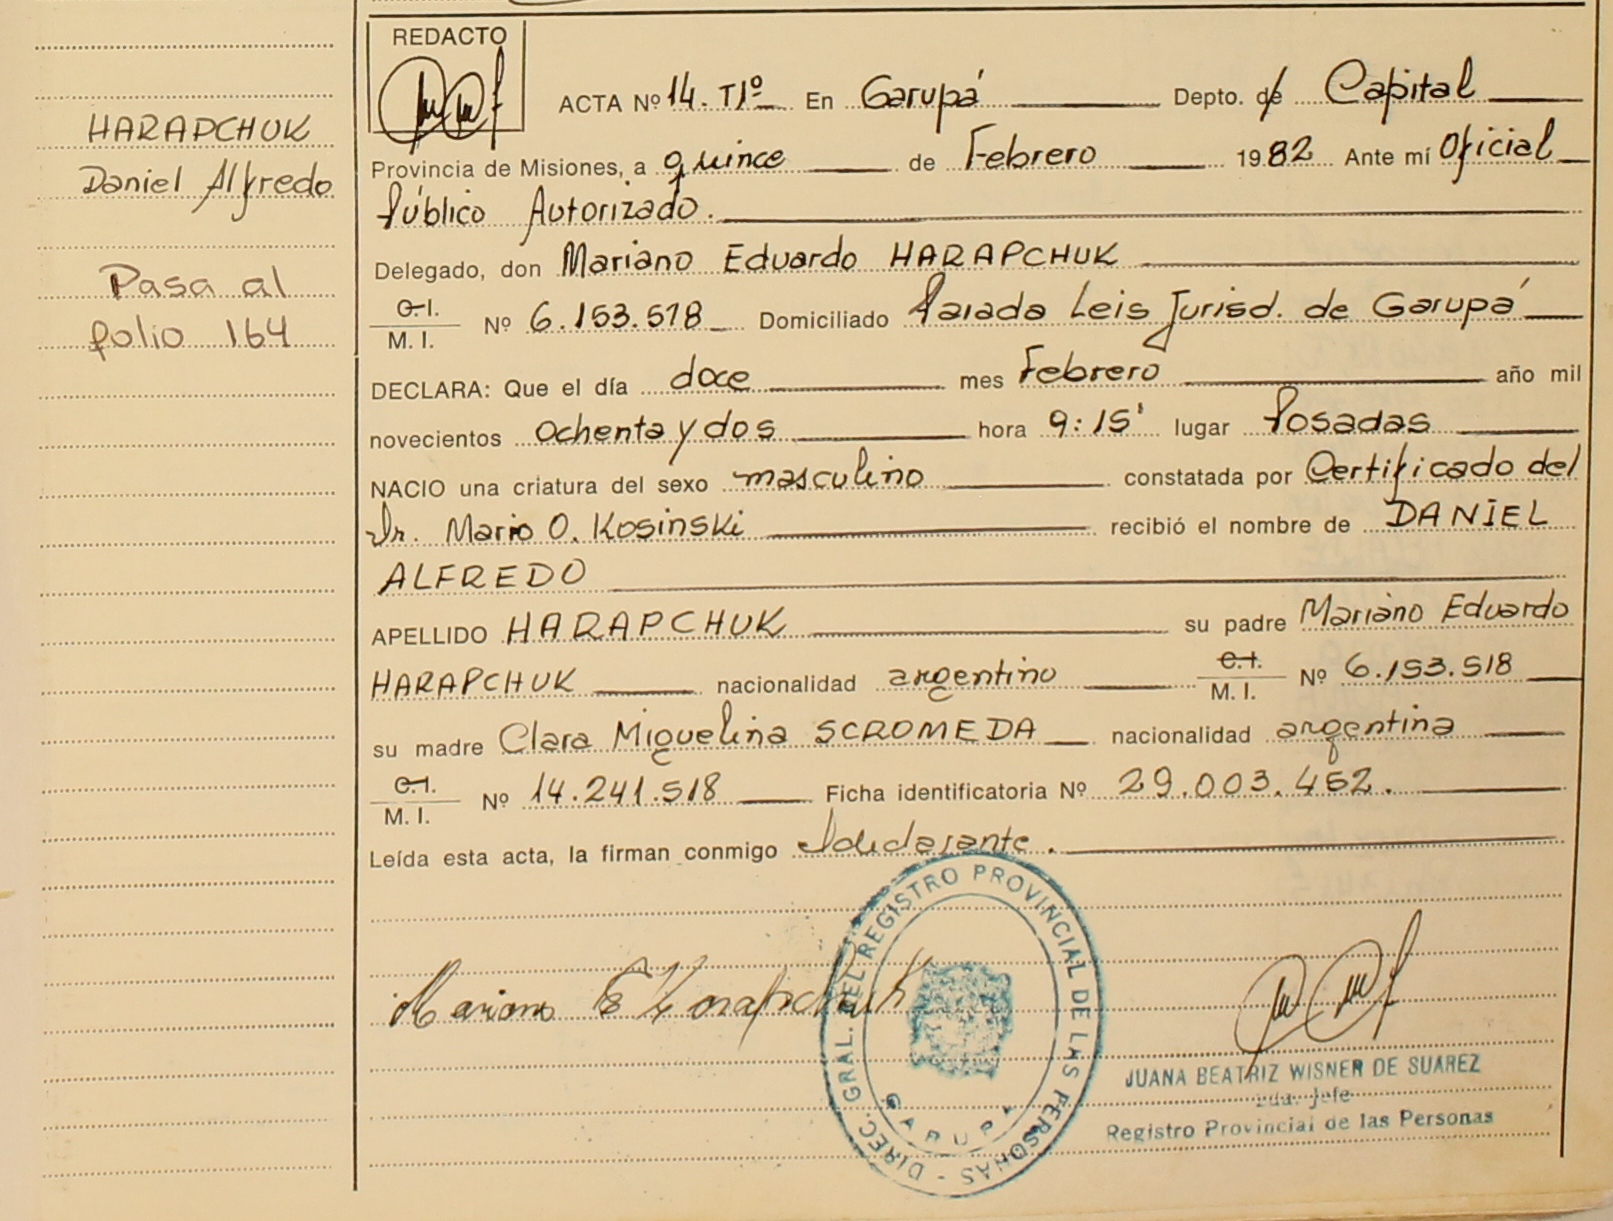 HARAPCHUK
Daniel Alfredo
Pasa al
folio 164
REDACTO
ACTA Nº 14. TIº En Garupá Depto. de Capital
Provincia de Misiones, a quince de Febrero 1982 Ante mí Oficial
Público Autorizado.
Delegado, don Mariano Eduardo HARAPCHUK
C.I.
M. I. Nº 6.153.518 Domiciliado Parada Leis Jurisd. de Garupá
DECLARA: Que el día doce mes Febrero año mil
novecientos ochenta y dos hora 9:15' lugar Posadas
NACIO una criatura del sexo masculino constatada por Certificado del
Dr. Mario O. Kosinski recibió el nombre de DANIEL
ALFREDO
APELLIDO HARAPCHUK su padre Mariano Eduardo
HARAPCHUK nacionalidad argentino C.I. M. I. Nº 6.153.518
su madre Clara Miguelina SCROMEDA nacionalidad argentina
C.I.
M. I. Nº 14.241.518 Ficha identificatoria Nº 29.003.452.
Leída esta acta, la firman conmigo el declarante.
Mariano E Harapchuk
DIREC. GRAL. DEL REGISTRO PROVINCIAL DE LAS PERSONAS -
GARUPA
JUANA BEATRIZ WISNER DE SUAREZ
2da. Jefe
Registro Provincial de las Personas